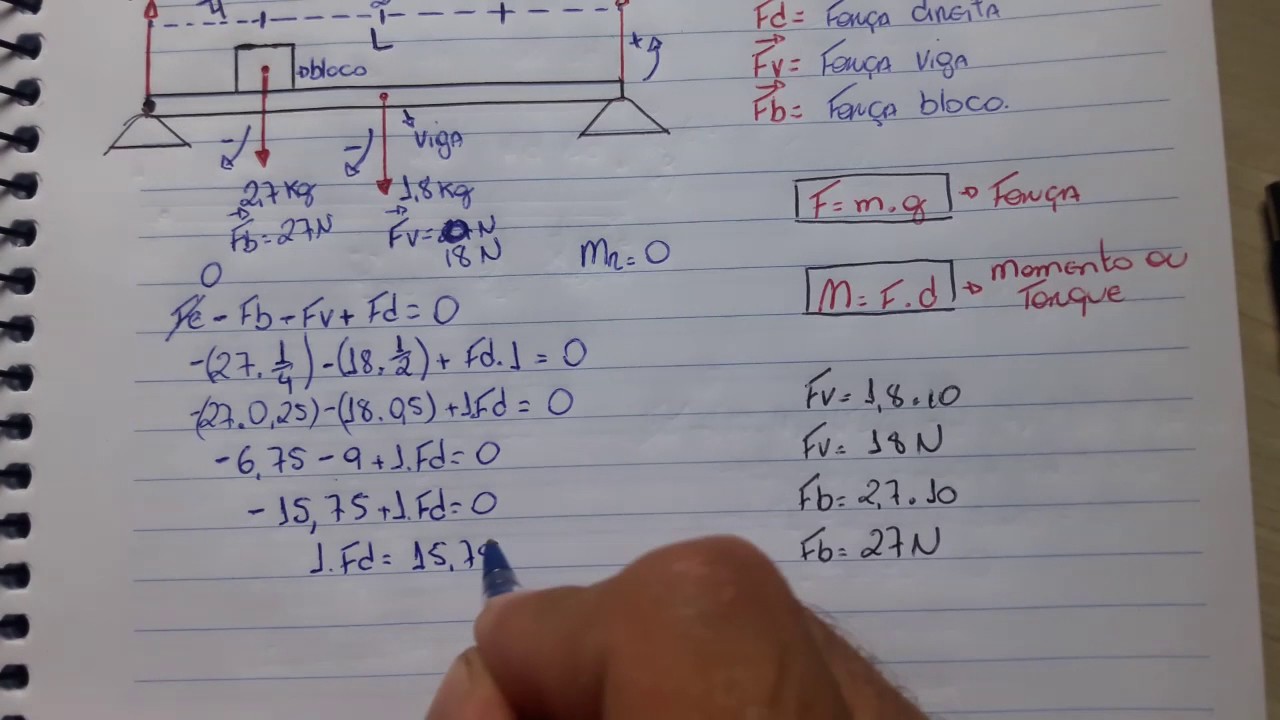 L
bloco
viga
2,7kg
1,8kg
Fb = 27N
Fv = N
18 N
Mr = 0
0
Fe - Fb - Fv + Fd = 0
-(27.1/4) - (18.1/2) + Fd.1 = 0
-(27.0,25) - (18.0,5) + 1.Fd = 0
-6,75 - 9 + 1.Fd = 0
-15,75 + 1.Fd = 0
1.Fd = 15,7
Fd = Força direita
Fv = Força viga
Fb = Força bloco.
F = m.g → Força
M = F.d → Momento ou
Torque
Fv = 1,8.10
Fv = 18N
Fb = 2,7.10
Fb = 27N